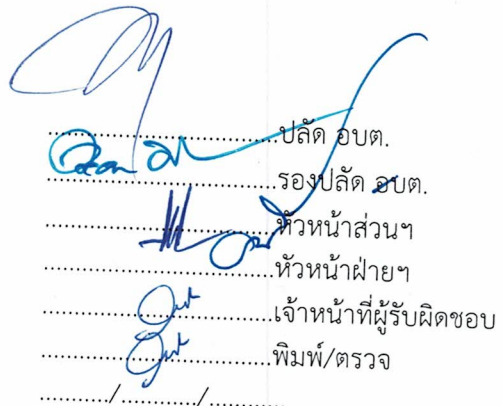 ....................................ปลัด อบต.
....................................รองปลัด อบต.
....................................หัวหน้าส่วนฯ
....................................หัวหน้าฝ่ายฯ
....................................เจ้าหน้าที่ผู้รับผิดชอบ
....................................พิมพ์/ตรวจ
.........../............/.............